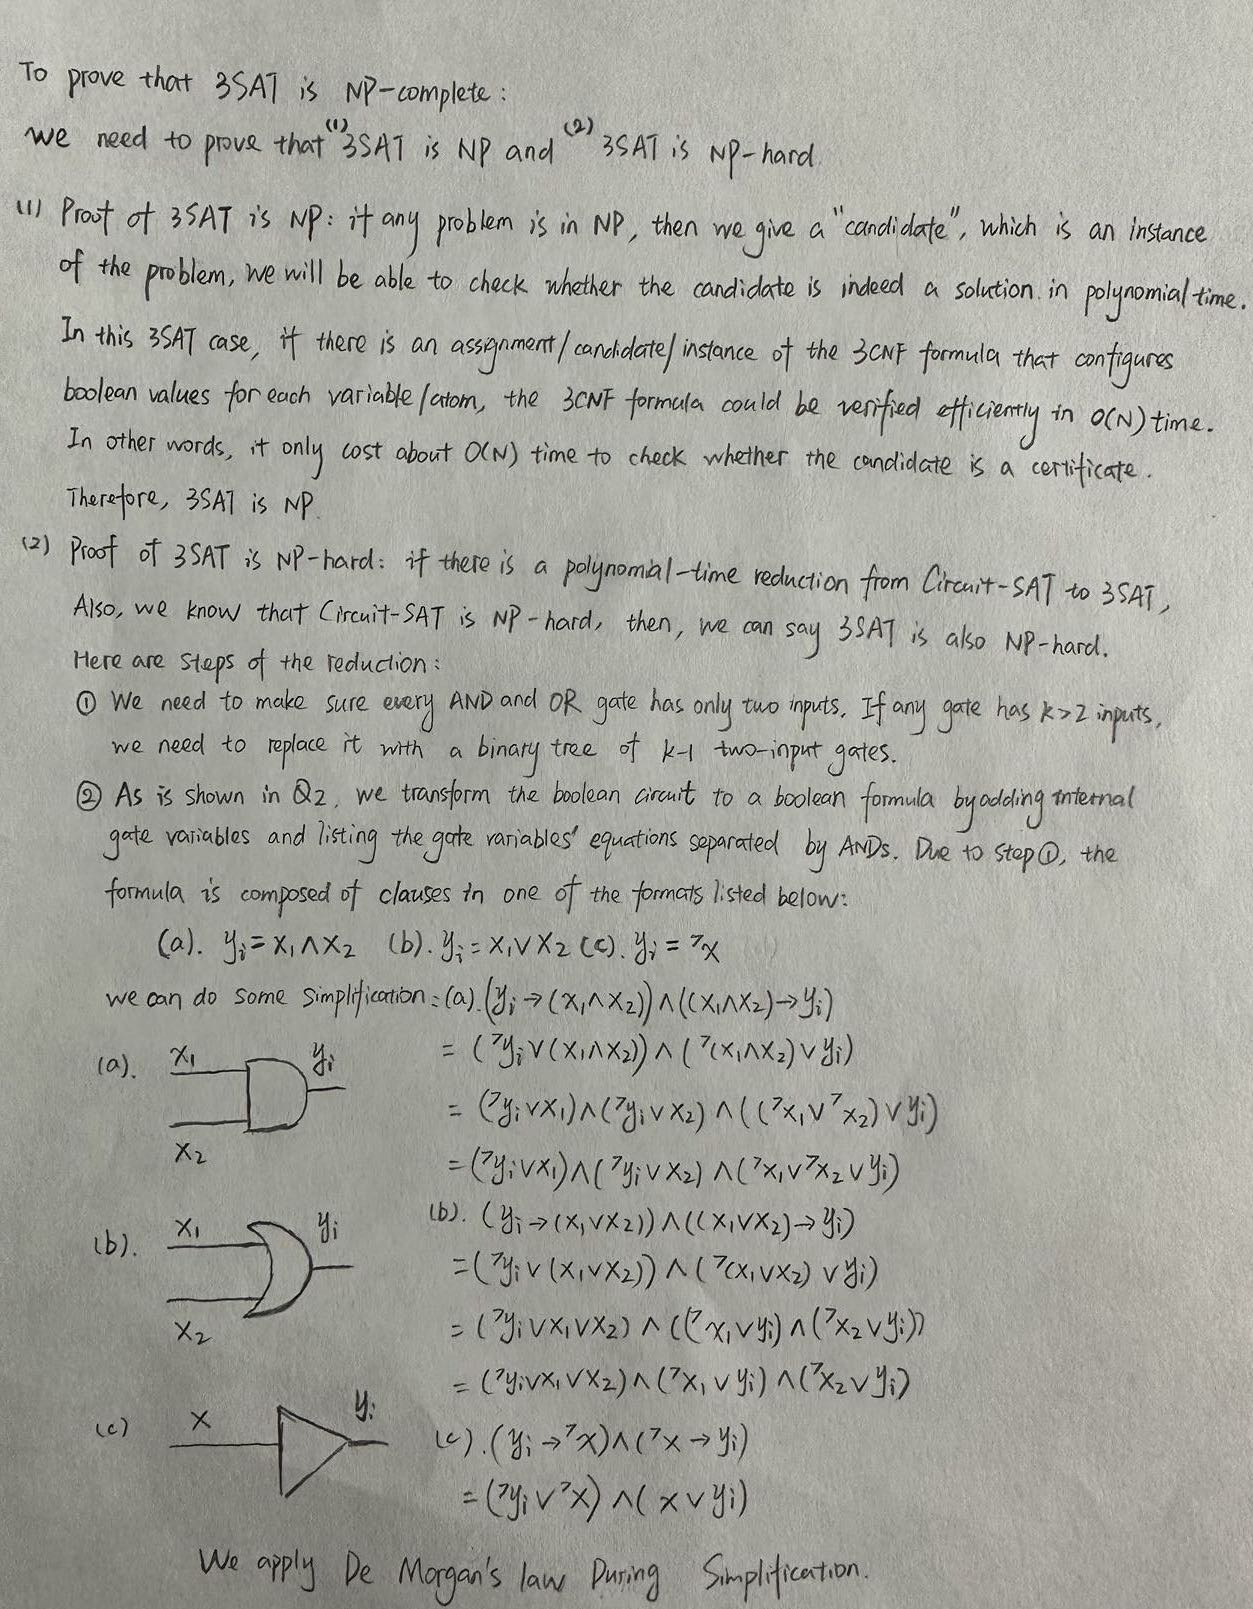 To prove that 3SAT is NP-complete:
we need to prove that (1) 3SAT is NP and (2) 3SAT is NP-hard.
(1) Proof of 3SAT is NP: if any problem is in NP, then we give a "candidate", which is an instance
of the problem, we will be able to check whether the candidate is indeed a solution in polynomial time.
In this 3SAT case, if there is an assignment/candidate/instance of the 3CNF formula that configures
boolean values for each variable/atom, the 3CNF formula could be verified efficiently in O(N) time.
In other words, it only cost about O(N) time to check whether the candidate is a certificate.
Therefore, 3SAT is NP.
(2) Proof of 3SAT is NP-hard: if there is a polynomial-time reduction from Circuit-SAT to 3SAT,
Also, we know that Circuit-SAT is NP-hard, then, we can say 3SAT is also NP-hard.
Here are steps of the reduction:
① We need to make sure every AND and OR gate has only two inputs. If any gate has k>2 inputs,
we need to replace it with a binary tree of k-1 two-input gates.
② As is shown in Q2, we transform the boolean circuit to a boolean formula by adding internal
gate variables and listing the gate variables' equations separated by ANDs. Due to step①, the
formula is composed of clauses in one of the formats listed below:
(a). yi = x1∧x2 (b). yi = x1∨x2 (c). yi = ¬x
we can do some simplification: (a). (yi→(x1∧x2))∧((x1∧x2)→yi)
(a). x1 yi = (¬yi∨(x1∧x2))∧(¬(x1∧x2)∨yi)
= (¬yi∨x1)∧(¬yi∨x2)∧((¬x1∨¬x2)∨yi)
x2 = (¬yi∨x1)∧(¬yi∨x2)∧(¬x1∨¬x2∨yi)
(b). x1 yi (b). (yi→(x1∨x2))∧((x1∨x2)→yi)
= (¬yi∨(x1∨x2))∧(¬(x1∨x2)∨yi)
x2 = (¬yi∨x1∨x2)∧((¬x1∨yi)∧(¬x2∨yi))
= (¬yi∨x1∨x2)∧(¬x1∨yi)∧(¬x2∨yi)
(c) x yi (c). (yi→¬x)∧(¬x→yi)
= (¬yi∨¬x)∧(x∨yi)
We apply De Morgan's law During Simplification.